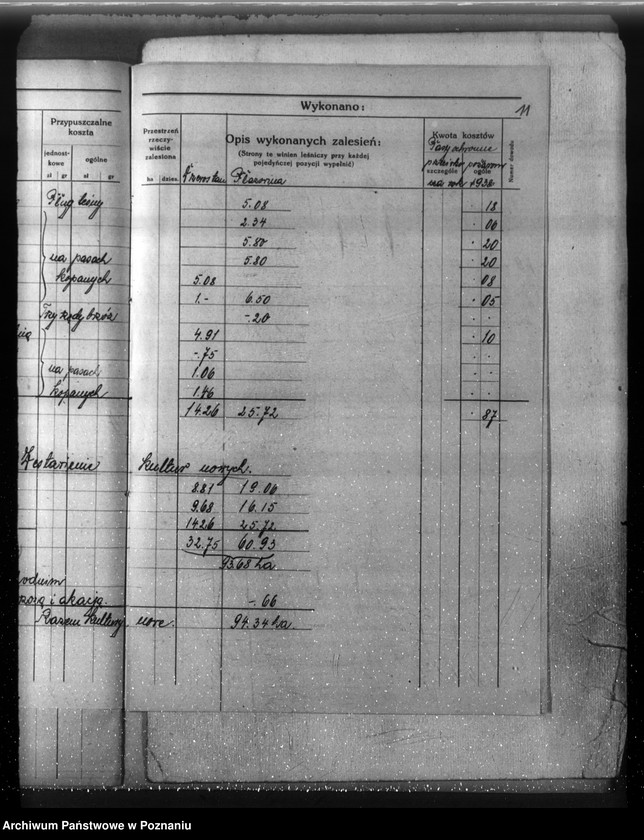 11
Wykonano:
Przypuszczalne koszta
jednost-
kowe
ogólne
zł gr zł gr
Przestrzeń
rzeczy-
wiście
zalesiona
ha dzies.
Opis wykonanych zalesień:
(Strony te winien leśniczy przy każdej
pojedyńczej pozycji wypełnić)
Kwota kosztów
szczególe
ogóle
Numer dowodu
Pług leśny
5.08 18
2.34 06
5.80 20
na pasach 5.80 20
kopanych 5.08 08
1.- 6.50 05
Trzy rzędy brzóz -.20
4.91 10
-.75
na pasach 1.06
kopanych 1.46
14.26 25.72 87
Zestawienie kultur nowych.
8.81 19.06
9.68 16.15
14.26 25.72
32.75 60.93
93.68 ha
i akacją. -.66
Razem kultury nowe. 94.34 ha.
Archiwum Państwowe w Poznaniu